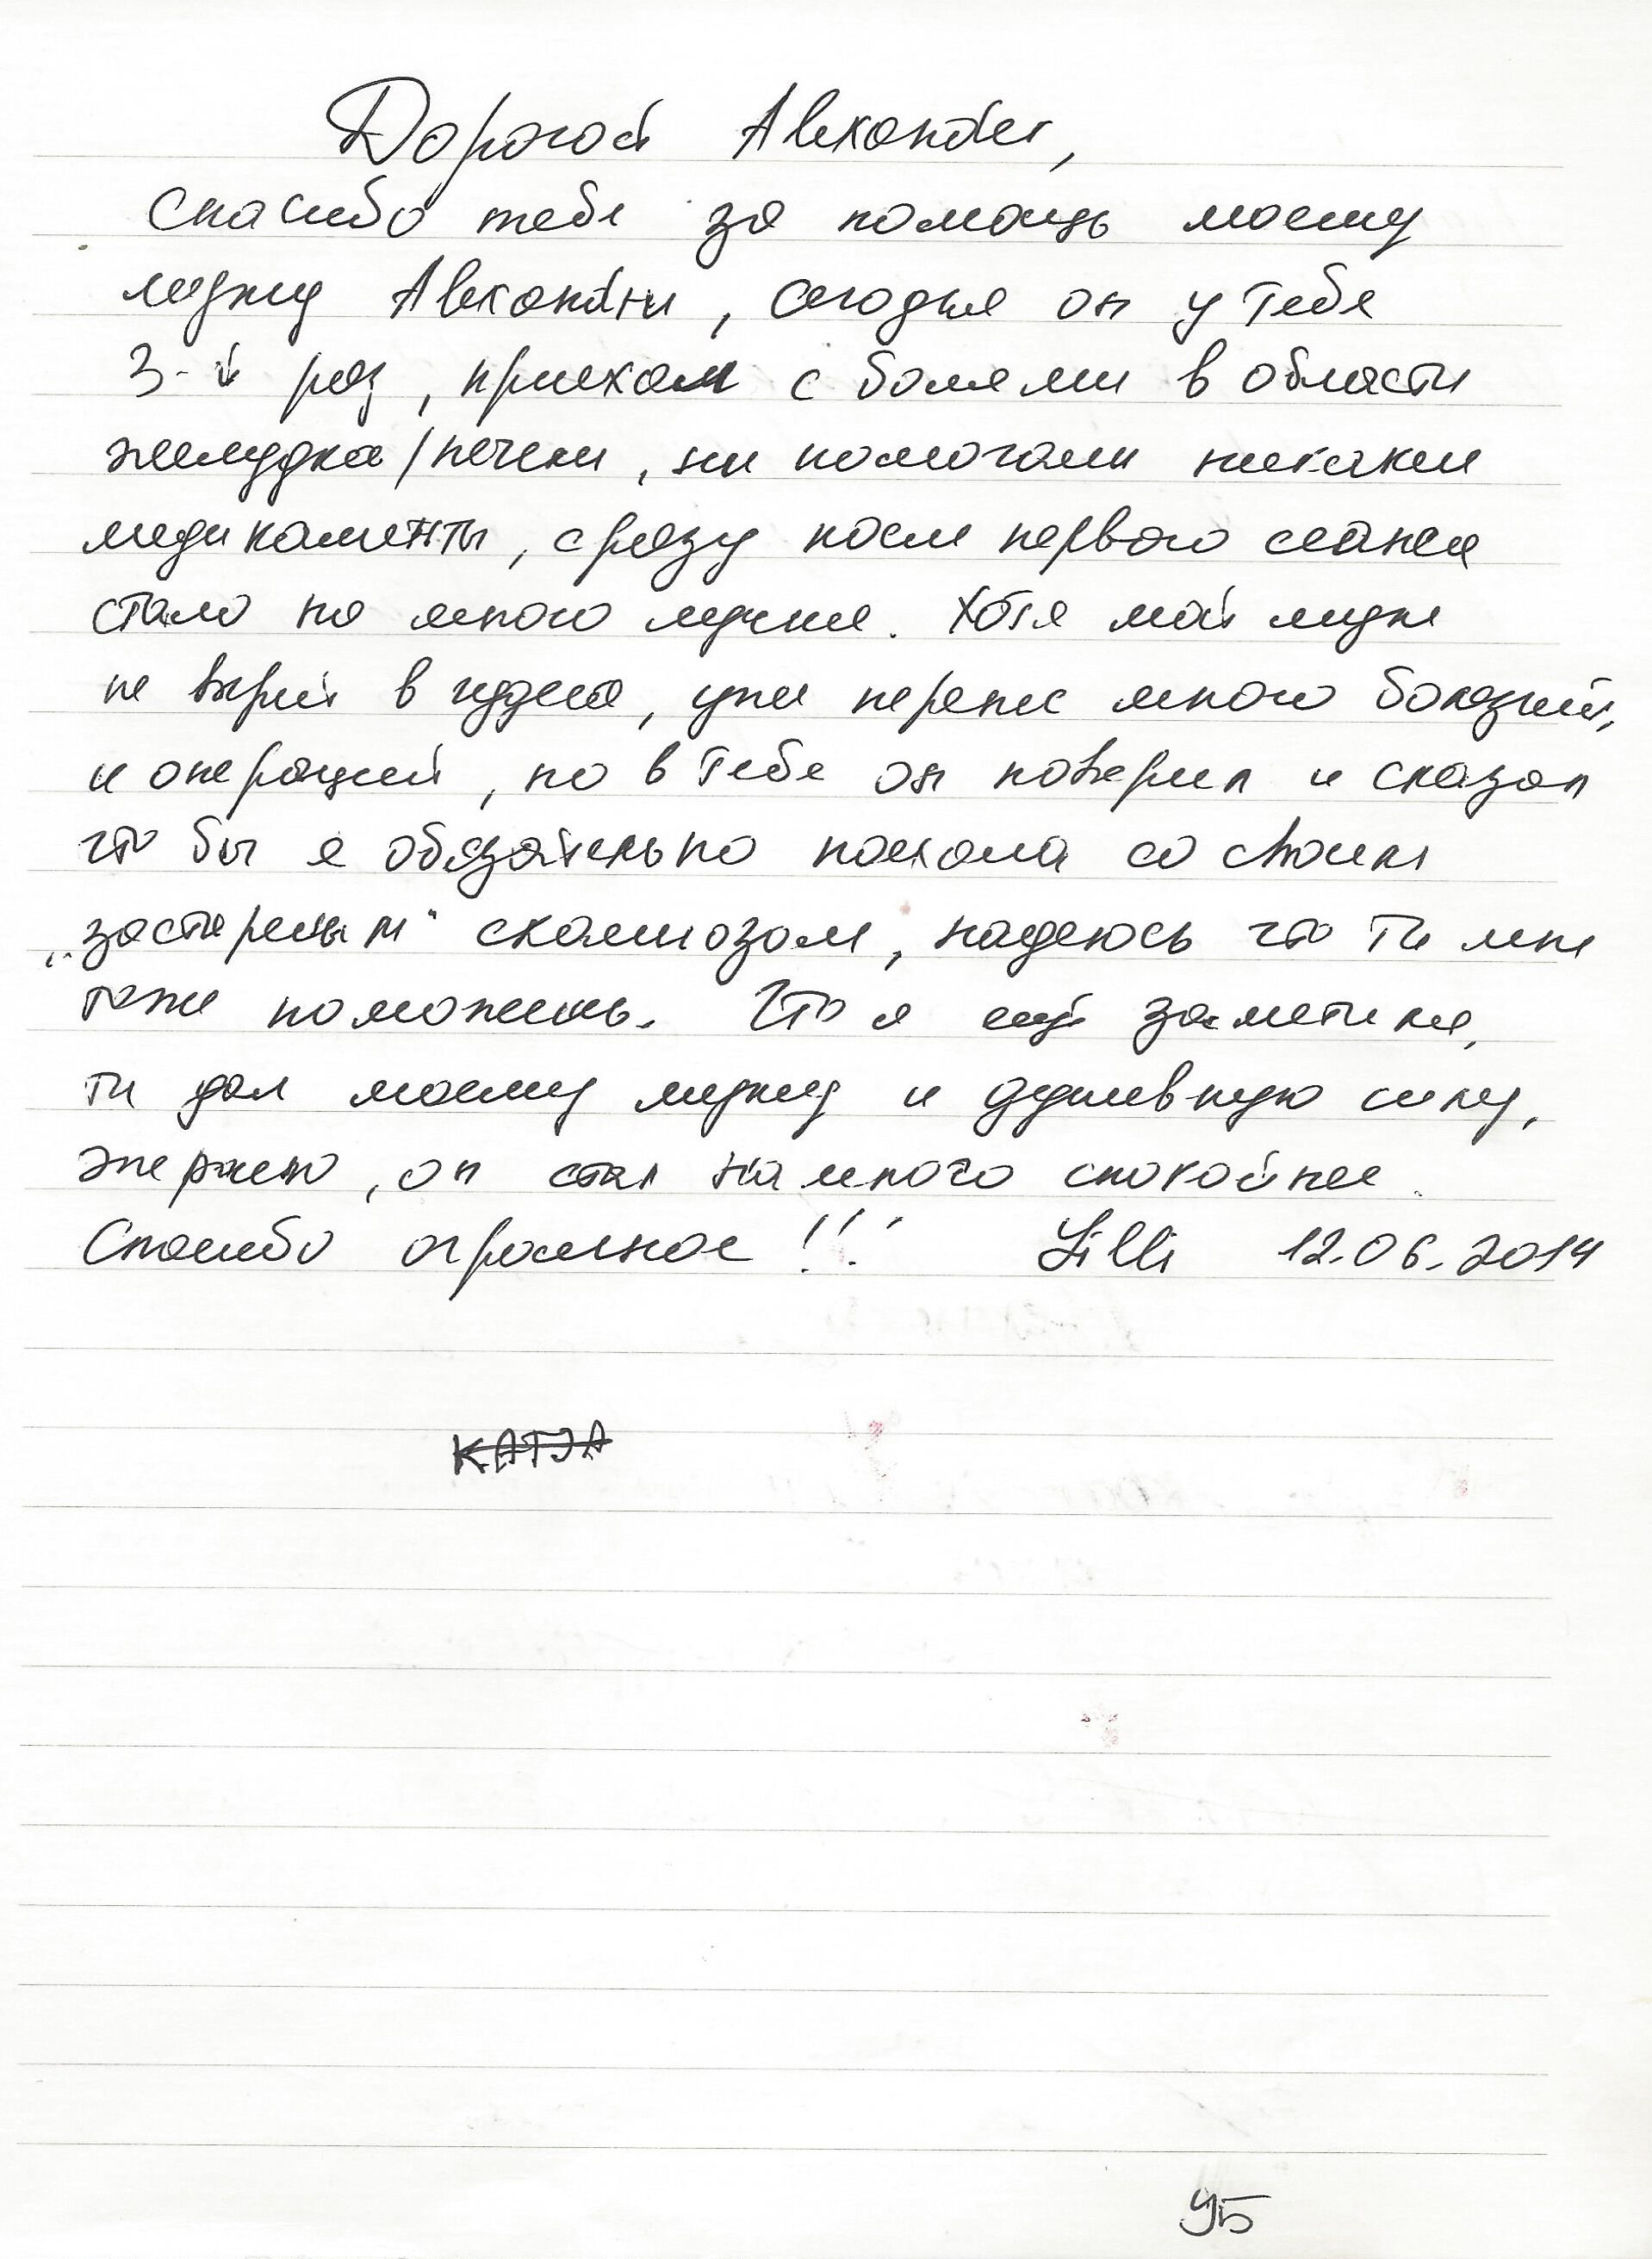 Дорогой Alexander,
спасибо тебе за помощь моему
мужу Alexandru, сегодня он у тебя
3-й раз, приехали с болями в области
желудка/печени, ни помогали никакие
медикаменты, сразу после первого сеанса
стало на много лучше. Хотя мой муж
не верил в чудеса, уже перенес много болезней,
и операций, но в тебе он поверил и сказал
что бы я обязательно поехала со своим
„застарелым" сколиозом, надеюсь что ты мне
тоже поможешь. Что я ещё заметила,
ты дал моему мужу и душевную силу,
энергию, он стал на много спокойнее.
Спасибо огромное !!! Lilli 12.06.2014
KATJA
95